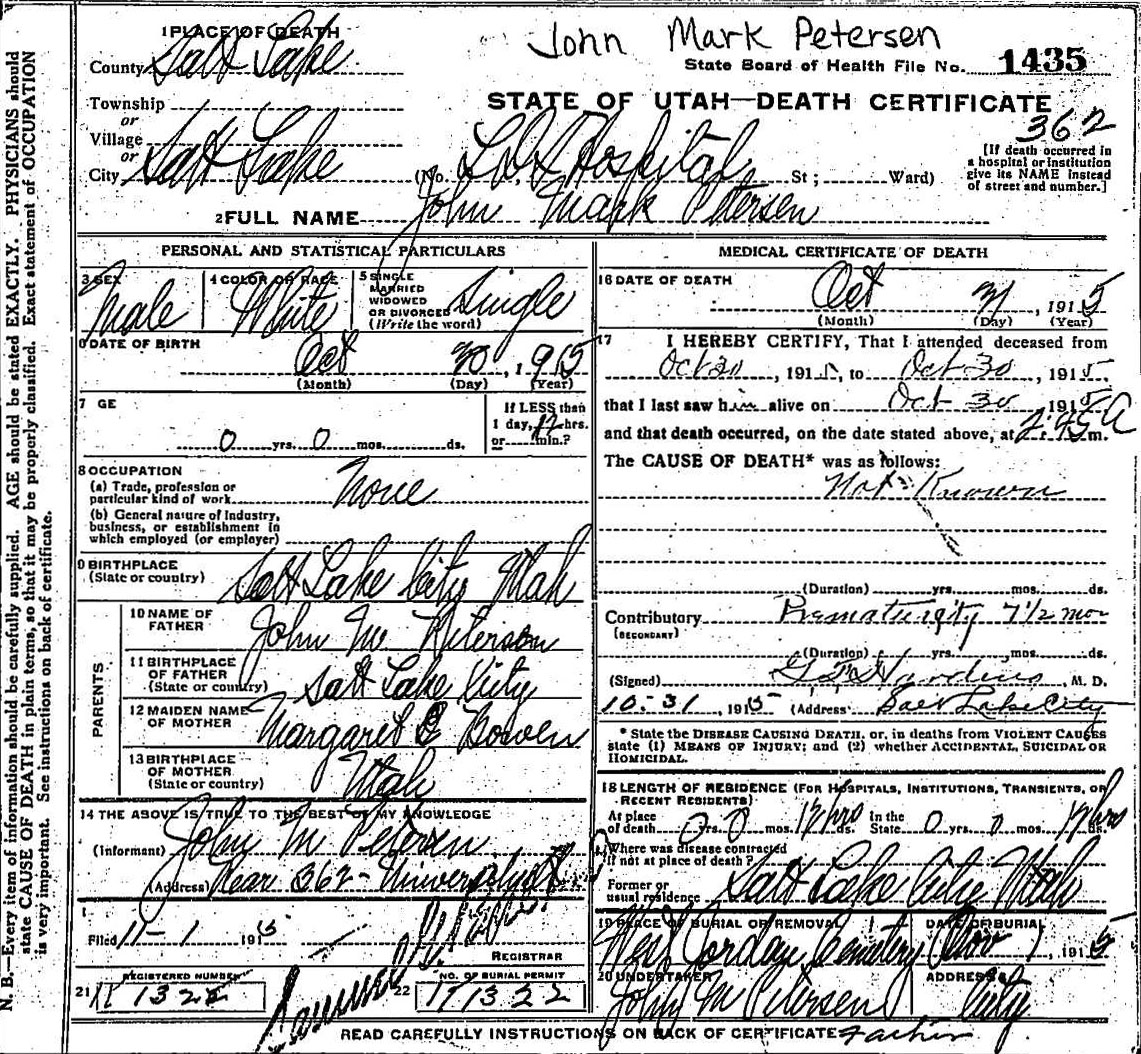 John Mark Petersen
1 PLACE OF DEATH
County Salt Lake
State Board of Health File No. 1435
Township
or
Village
or
City Salt Lake
STATE OF UTAH—DEATH CERTIFICATE
362
(No. L D S Hospital St; Ward)
[If death occurred in
a hospital or institution
give its NAME instead
of street and number.]
2 FULL NAME John Mark Petersen
PERSONAL AND STATISTICAL PARTICULARS
3 SEX Male
4 COLOR OR RACE White
5 SINGLE
MARRIED
WIDOWED
OR DIVORCED
(Write the word) Single
6 DATE OF BIRTH
Oct 30, 1915
(Month) (Day) (Year)
7 AGE
0 yrs. 0 mos. ds.
If LESS than
1 day, 12 hrs.
or min.?
8 OCCUPATION
(a) Trade, profession or
particular kind of work None
(b) General nature of industry,
business, or establishment in
which employed (or employer)
9 BIRTHPLACE
(State or country) Salt Lake City Utah
PARENTS
10 NAME OF
FATHER John M Peterson
11 BIRTHPLACE
OF FATHER
(State or country) Salt Lake City
12 MAIDEN NAME
OF MOTHER Margaret E Bowen
13 BIRTHPLACE
OF MOTHER
(State or country) Utah
14 THE ABOVE IS TRUE TO THE BEST OF MY KNOWLEDGE
(Informant) John M Petersen
(Address) Rear 362 - University
Filed 11-1 1915
REGISTRAR
REGISTERED NUMBER
21 1322
NO. OF BURIAL PERMIT
22 1322
MEDICAL CERTIFICATE OF DEATH
16 DATE OF DEATH
Oct 31, 1915
(Month) (Day) (Year)
17 I HEREBY CERTIFY, That I attended deceased from
Oct 30, 1915, to Oct 30, 1915
that I last saw him alive on Oct 30 1915
and that death occurred, on the date stated above, at 2:45 A m.
The CAUSE OF DEATH* was as follows:
Not Known
(Duration) yrs. mos. ds.
Contributory Prematurity 7 1/2 mos
(SECONDARY)
(Duration) yrs. mos. ds.
(Signed) M. D.
10-31, 1915 (Address) Salt Lake City
* State the DISEASE CAUSING DEATH, or, in deaths from VIOLENT CAUSES
state (1) MEANS OF INJURY; and (2) whether ACCIDENTAL, SUICIDAL OR
HOMICIDAL.
18 LENGTH OF RESIDENCE (FOR HOSPITALS, INSTITUTIONS, TRANSIENTS, OR
RECENT RESIDENTS)
At place
of death 0 yrs. 0 mos. 12 hrs ds. In the
State 0 yrs. 0 mos. 12 hrs ds.
Where was disease contracted
if not at place of death?
Former or
usual residence Salt Lake City Utah
19 PLACE OF BURIAL OR REMOVAL West Jordan Cemetery
DATE OF BURIAL Nov 1, 1915
20 UNDERTAKER John M Petersen
ADDRESS City
READ CAREFULLY INSTRUCTIONS ON BACK OF CERTIFICATE Father
N. B.—Every item of information should be carefully supplied. AGE should be stated EXACTLY. PHYSICIANS should
state CAUSE OF DEATH in plain terms, so that it may be properly classified. Exact statement of OCCUPATION
is very important. See instructions on back of certificate.